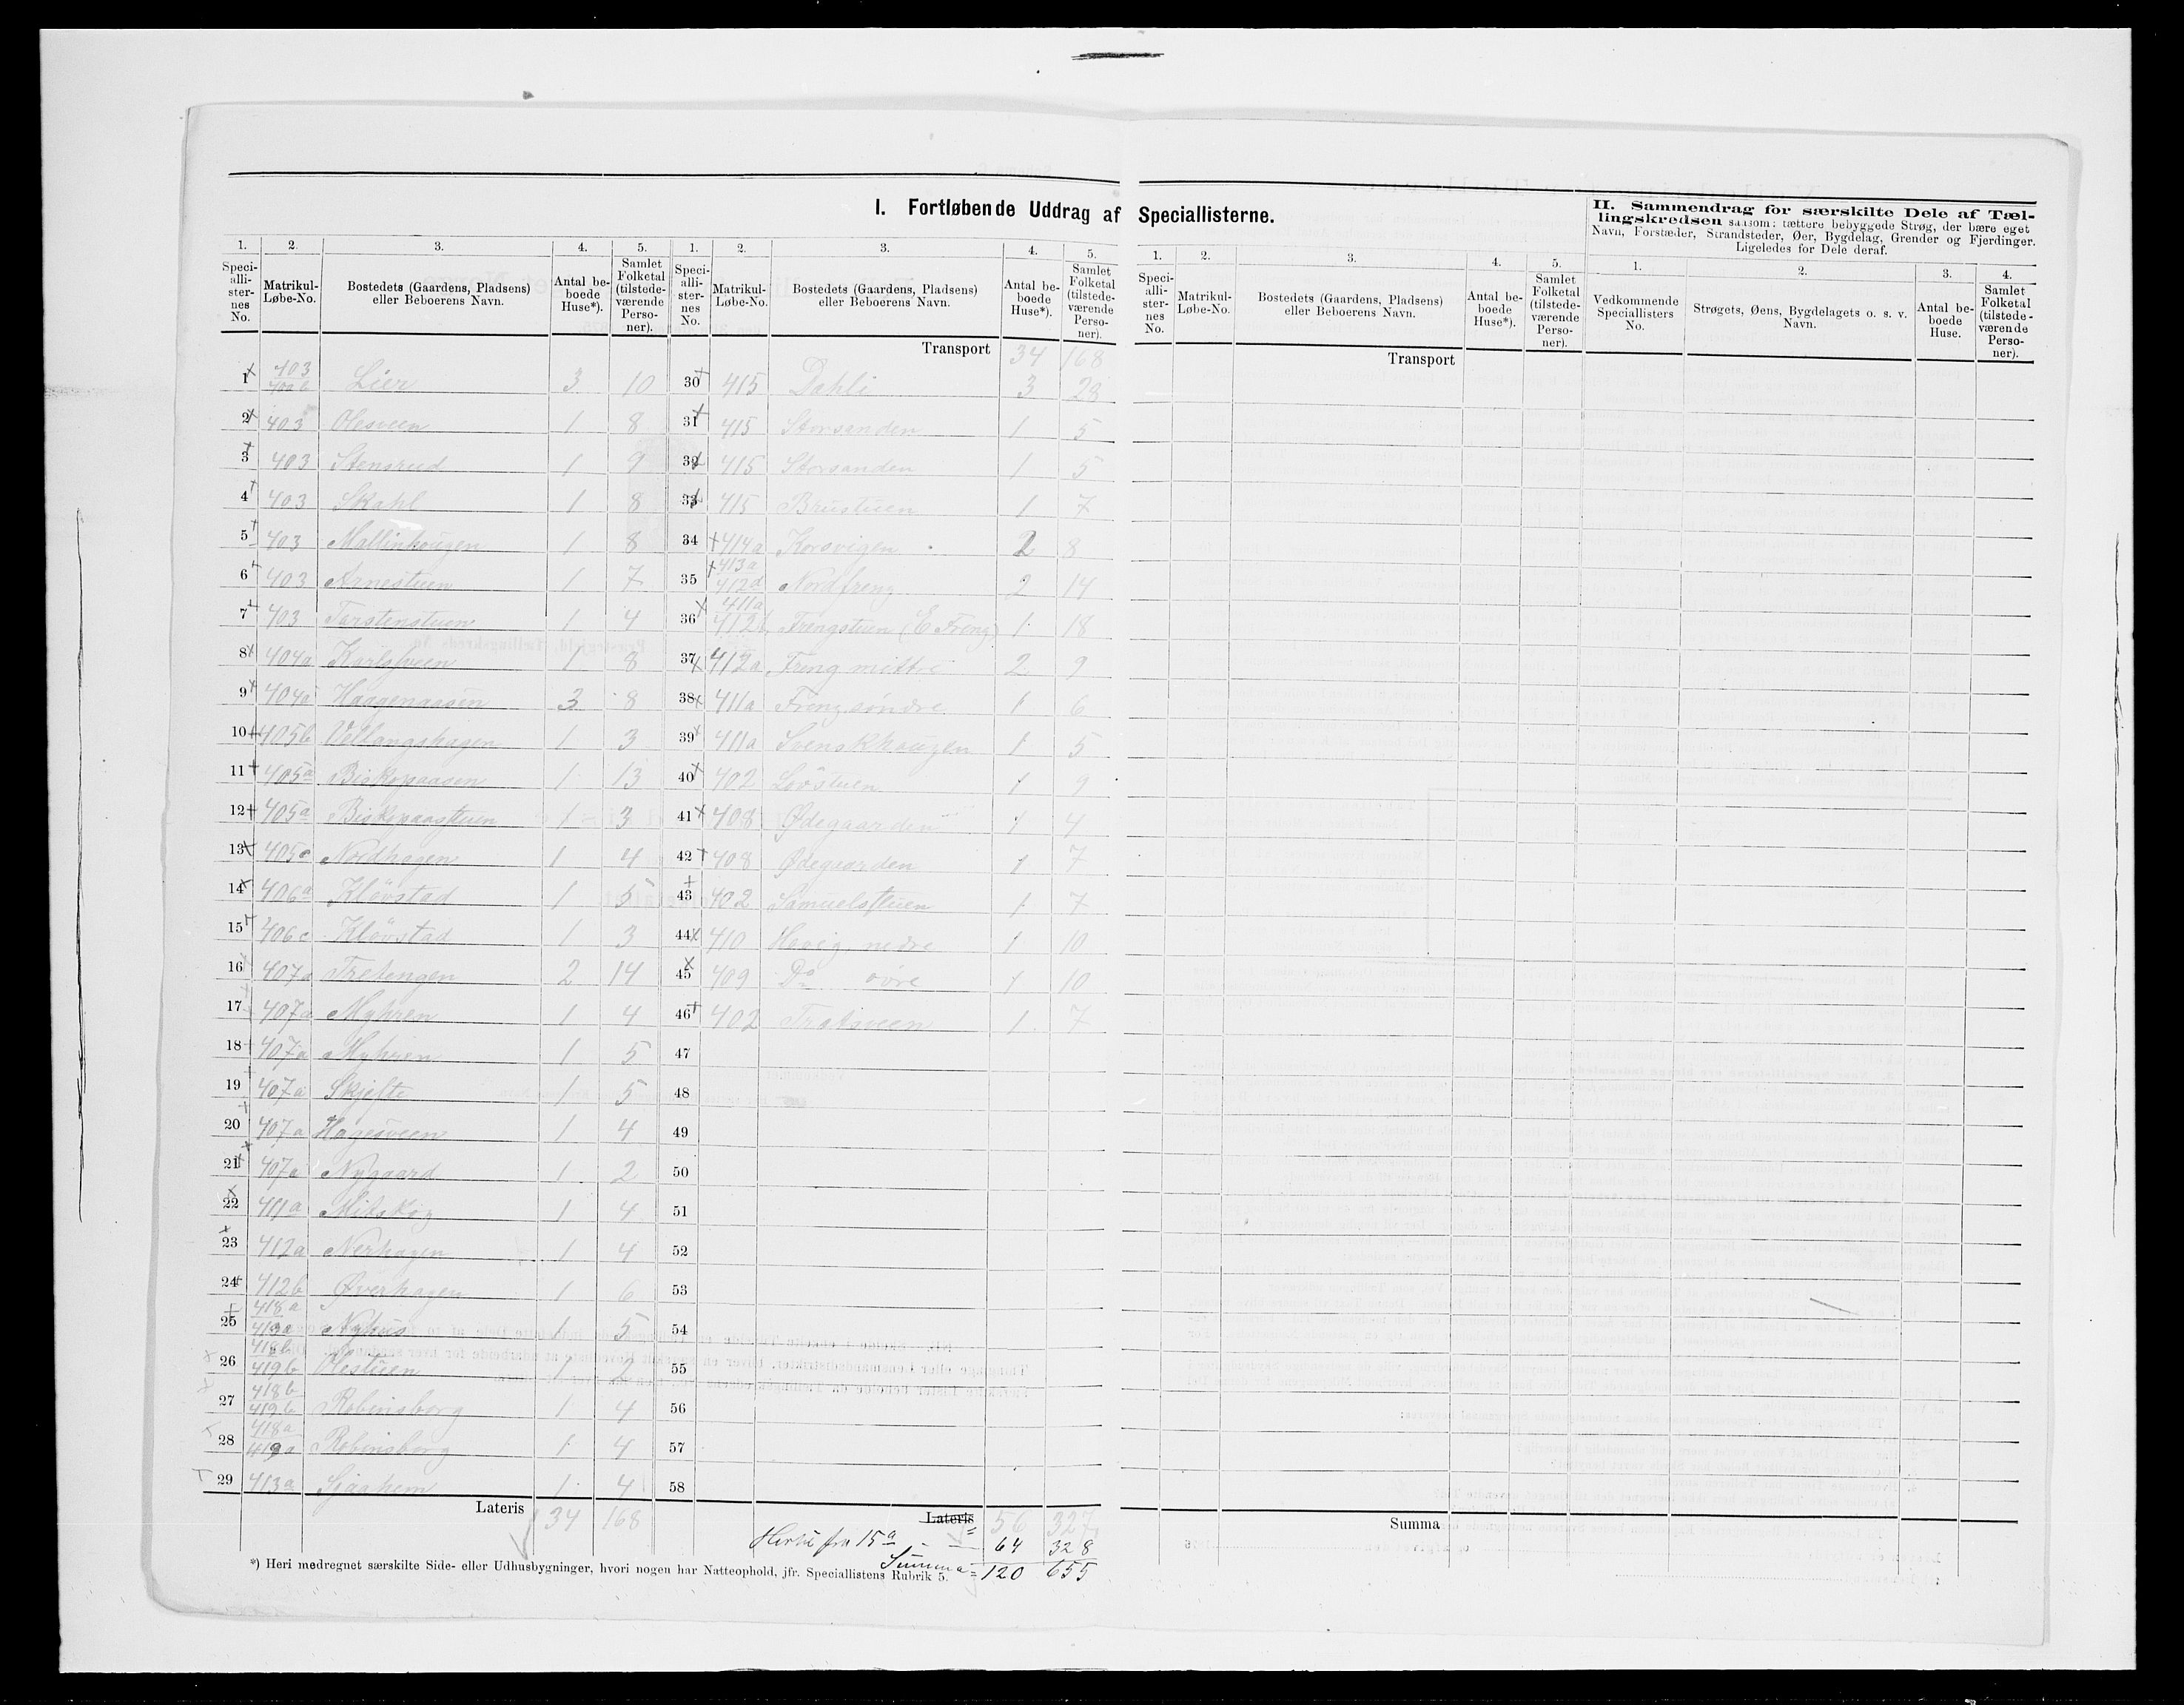 I. Fortløbende Uddrag af Speciallisterne.
II. Sammendrag for særskilte Dele af Tæl-
lingskredsen saasom: tættere bebyggede Strøg, der bære eget
Navn, Forstæder, Strandsteder, Øer, Bygdelag, Grender og Fjerdinger.
Ligeledes for Dele deraf.
1. 2. 3. 4. 5. 1. 2. 3. 4. 5. 1. 2. 3. 4. 5. 1. 2. 3. 4.
Speci-alli-ster-nes No. Matrikul-Løbe-No. Bostedets (Gaardens, Pladsens) eller Beboerens Navn. Antal be-boede Huse*). Samlet Folketal (tilstede-værende Perso-ner).
Speci-alli-ster-nes No. Matrikul-Løbe-No. Bostedets (Gaardens, Pladsens) eller Beboerens Navn. Antal be-boede Huse*). Samlet Folketal (tilstede-værende Perso-ner).
Speci-alli-ster-nes No. Matrikul-Løbe-No. Bostedets (Gaardens, Pladsens) eller Beboerens Navn. Antal be-boede Huse*). Samlet Folketal (tilstede-værende Perso-ner).
Vedkommende Speciallisters No. Strøgets, Øens, Bygdelagets o. s. v. Navn. Antal be-boede Huse. Samlet Folketal (tilstede-værende Perso-ner).
1 403 Lier 3 10
2 403 Olesveen 1 8
3 403 Stensrud 1 9
4 403 Skahl 1 8
5 403 Mallinhougen 1 8
6 403 Arnestuen 1 7
7 403 Tarstenstuen 1 4
8 404a Karlsveen 1 8
9 404a Haagenaasen 3 8
10 405b Vellangshagen 1 3
11 405a Biskopaasen 1 13
12 405a Biskopaastuen 1 3
13 405c Nordhagen 1 4
14 406a Kløvstad 1 5
15 406c Kløvstad 1 3
16 407a Tretengen 2 14
17 407a Myhren 1 4
18 407a Myhren 1 5
19 407a Skjefte 1 5
20 407a Hagesveen 1 4
21 407a Nygaard 1 2
22 411a Mitskog 1 4
23 412a Nerhagen 1 4
24 412b Øverhagen 1 6
25 418a 419a Nyhus 1 5
26 418b 419b Olestuen 1 2
27 418b 419b Robinsborg 1 4
28 418a 419a Robinsborg 1 4
29 413a Sjaahem 1 4
Lateris 34 168
Transport 34 168
30 415 Dahli 3 23
31 415 Storsanden 1 5
32 415 Storsanden 1 5
33 415 Brustuen 1 7
34 414a Korsvigen 2 8
35 413a 412d Nordfreng 2 14
36 411a 412b Frengstuen (E Freng) 1 18
37 412a Freng mittre 2 9
38 411a Freng søndre 1 6
39 411a Svenskhaugen 1 5
40 402 Lovstuen 1 9
41 408 Ødegaarden 1 4
42 408 Ødegaarden 1 7
43 402 Samuelstuen 1 7
44 410 Hovig nedre 1 10
45 409 Do øvre 1 10
46 402 Tratsveen 1 7
47
48
49
50
51
52
53
54
55
56
57
58
Lateris 56 327
Hertil fra 15a 64 328
Summa = 120 655
Transport
Summa
*) Heri medregnet særskilte Side- eller Udhusbygninger, hvori nogen har Natteophold, jfr. Speciallistens Rubrik 5.